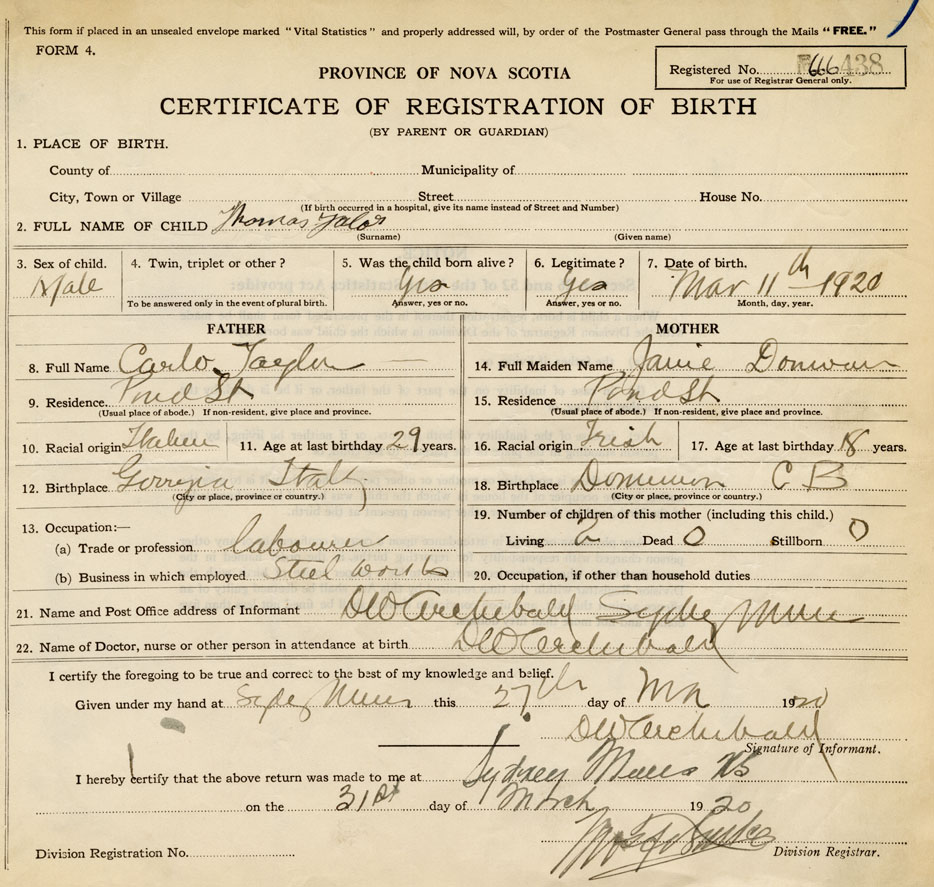 This form if placed in an unsealed envelope marked "Vital Statistics" and properly addressed will, by order of the Postmaster General pass through the Mails "FREE."
FORM 4.
PROVINCE OF NOVA SCOTIA
Registered No. 438
For use of Registrar General only.
CERTIFICATE OF REGISTRATION OF BIRTH
(BY PARENT OR GUARDIAN)
1. PLACE OF BIRTH.
County of Municipality of
City, Town or Village Street House No.
(If birth occurred in a hospital, give its name instead of Street and Number)
2. FULL NAME OF CHILD Thomas
(Surname) (Given name)
3. Sex of child. 4. Twin, triplet or other? 5. Was the child born alive? 6. Legitimate? 7. Date of birth.
Male Yes Yes Mar 11th 1920
To be answered only in the event of plural birth. Answer, yes or no. Answer, yes or no. Month, day, year.
FATHER MOTHER
8. Full Name Carlo Taylor 14. Full Maiden Name Janie
9. Residence. Pond St 15. Residence Pond St
(Usual place of abode.) If non-resident, give place and province. (Usual place of abode.) If non-resident, give place and province.
10. Racial origin Italien 11. Age at last birthday 29 years. 16. Racial origin Irish 17. Age at last birthday 18 years.
12. Birthplace Italy 18. Birthplace C B
(City or place, province or country.) (City or place, province or country.)
13. Occupation:— 19. Number of children of this mother (including this child.)
(a) Trade or profession labourer Living 2 Dead 0 Stillborn 0
(b) Business in which employed Steel Works 20. Occupation, if other than household duties
21. Name and Post Office address of Informant DW Archibald Sydney Mines
22. Name of Doctor, nurse or other person in attendance at birth DW Archibald
I certify the foregoing to be true and correct to the best of my knowledge and belief.
Given under my hand at Sydney Mines this 27th day of 1920
DW Archibald
Signature of Informant.
I hereby certify that the above return was made to me at Sydney Mines NS
on the 31st day of March 1920
Division Registration No. Division Registrar.